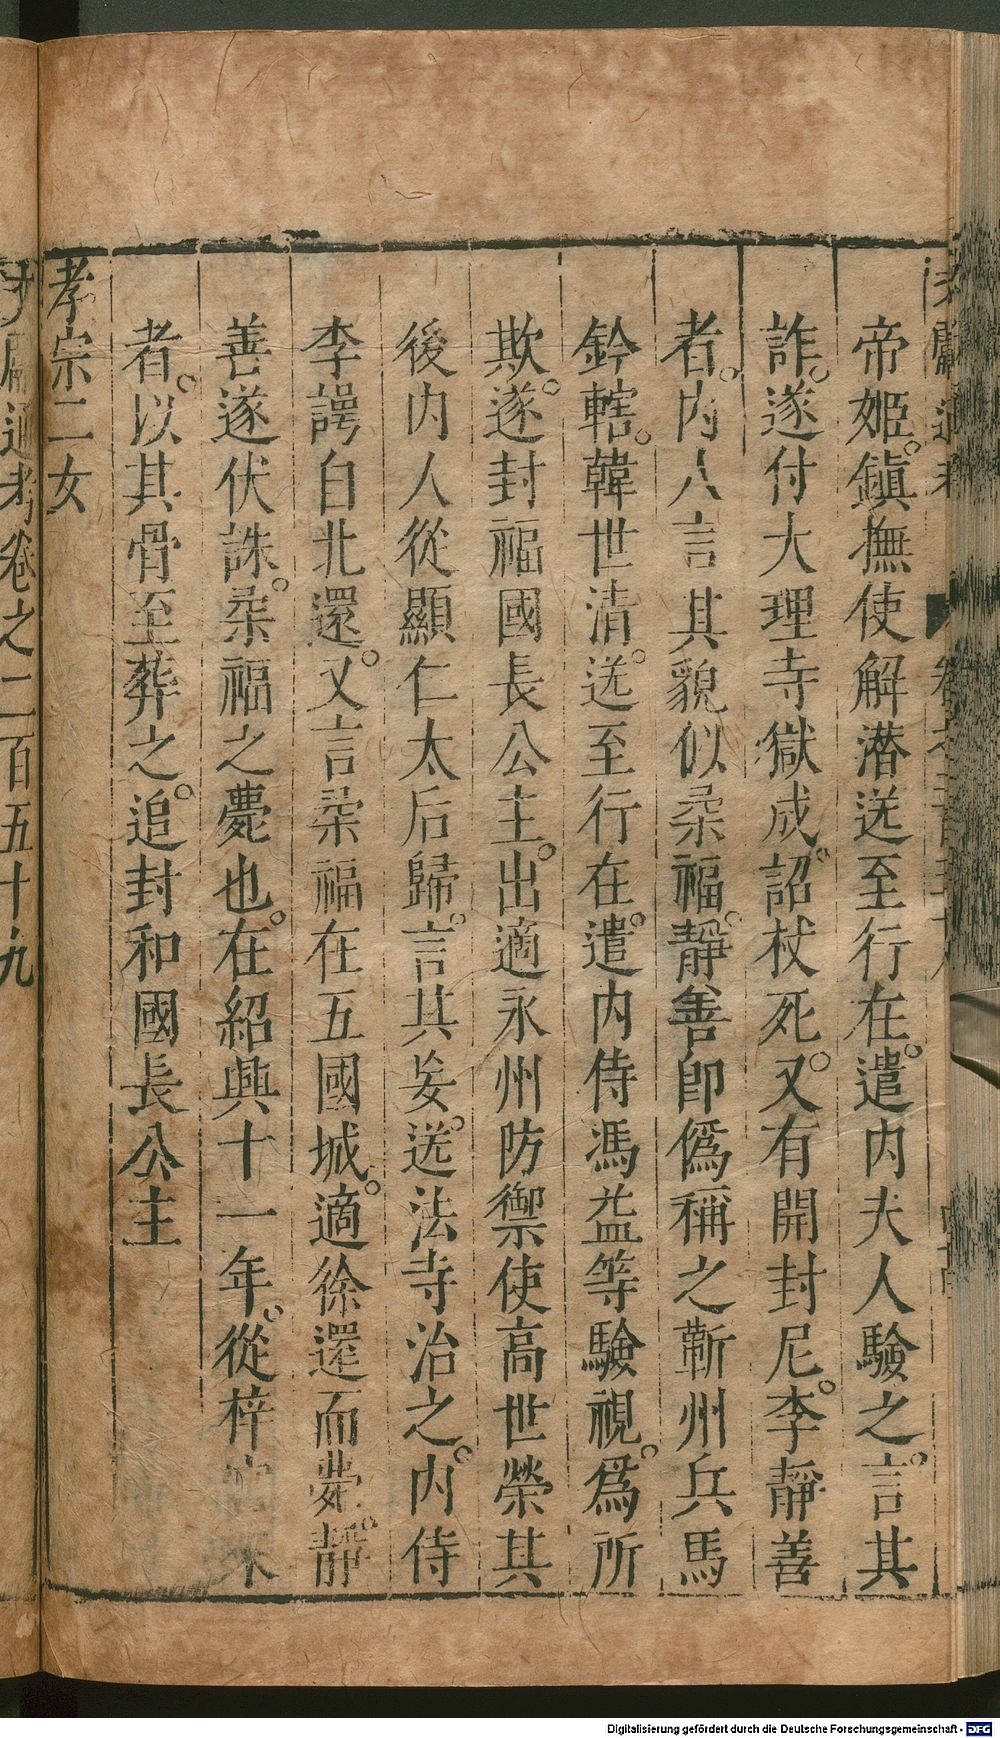 帝姬。鎭撫使解潜送至行在。遣内夫人驗之。言其
詐。遂付大理寺獄成。詔杖死。又有開封尼。李靜善
者。内人言其貌似柔福。靜善卽僞稱之蘄州兵馬
鈐轄。韓世清。送至行在。遣内侍馮益等驗視。爲所
欺。遂封福國長公主。出適永州防禦使高世榮其
後内人從顯仁太后歸。言其妄。送法寺治之。内侍
李諤自北還。又言柔福在五國城。適徐還而薨。靜
善遂伏誅。柔福之薨也。在紹興十一年。從梓宮來
者。以其骨至葬之。追封和國長公主
孝宗二女
文獻通考卷之二百五十九
Digitalisierung gefördert durch die Deutsche Forschungsgemeinschaft - DFG